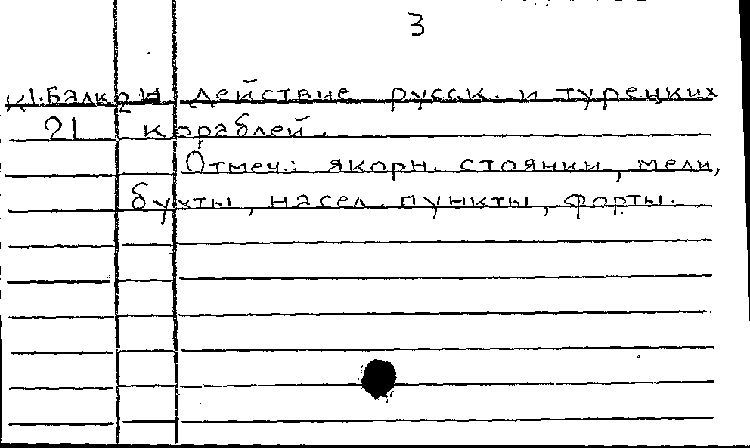 3
К1.Балкан действие русск. и турецких
21 кораблей.
Отмеч.: якорн. стоянки, мели,
бухты, насел. пункты, форты.